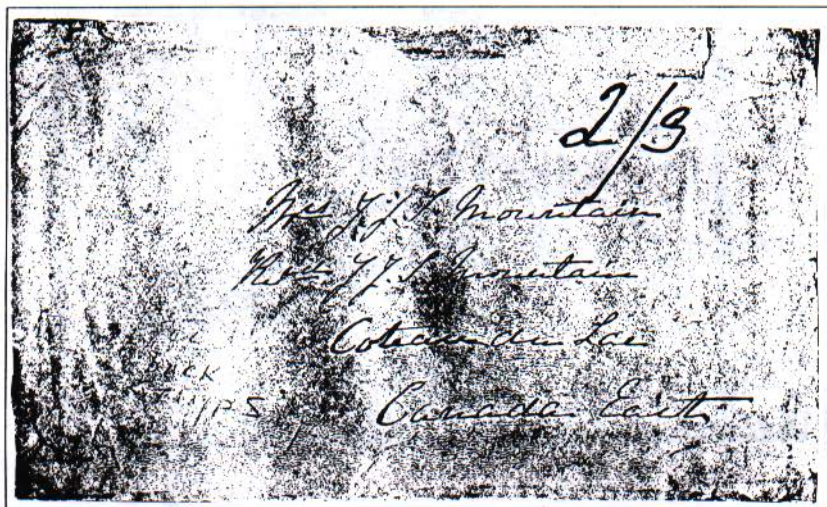 2/3
Mrs J.J.S. Mountain
Revd J.J.S. Mountain
Coteau du Lac
Canada East